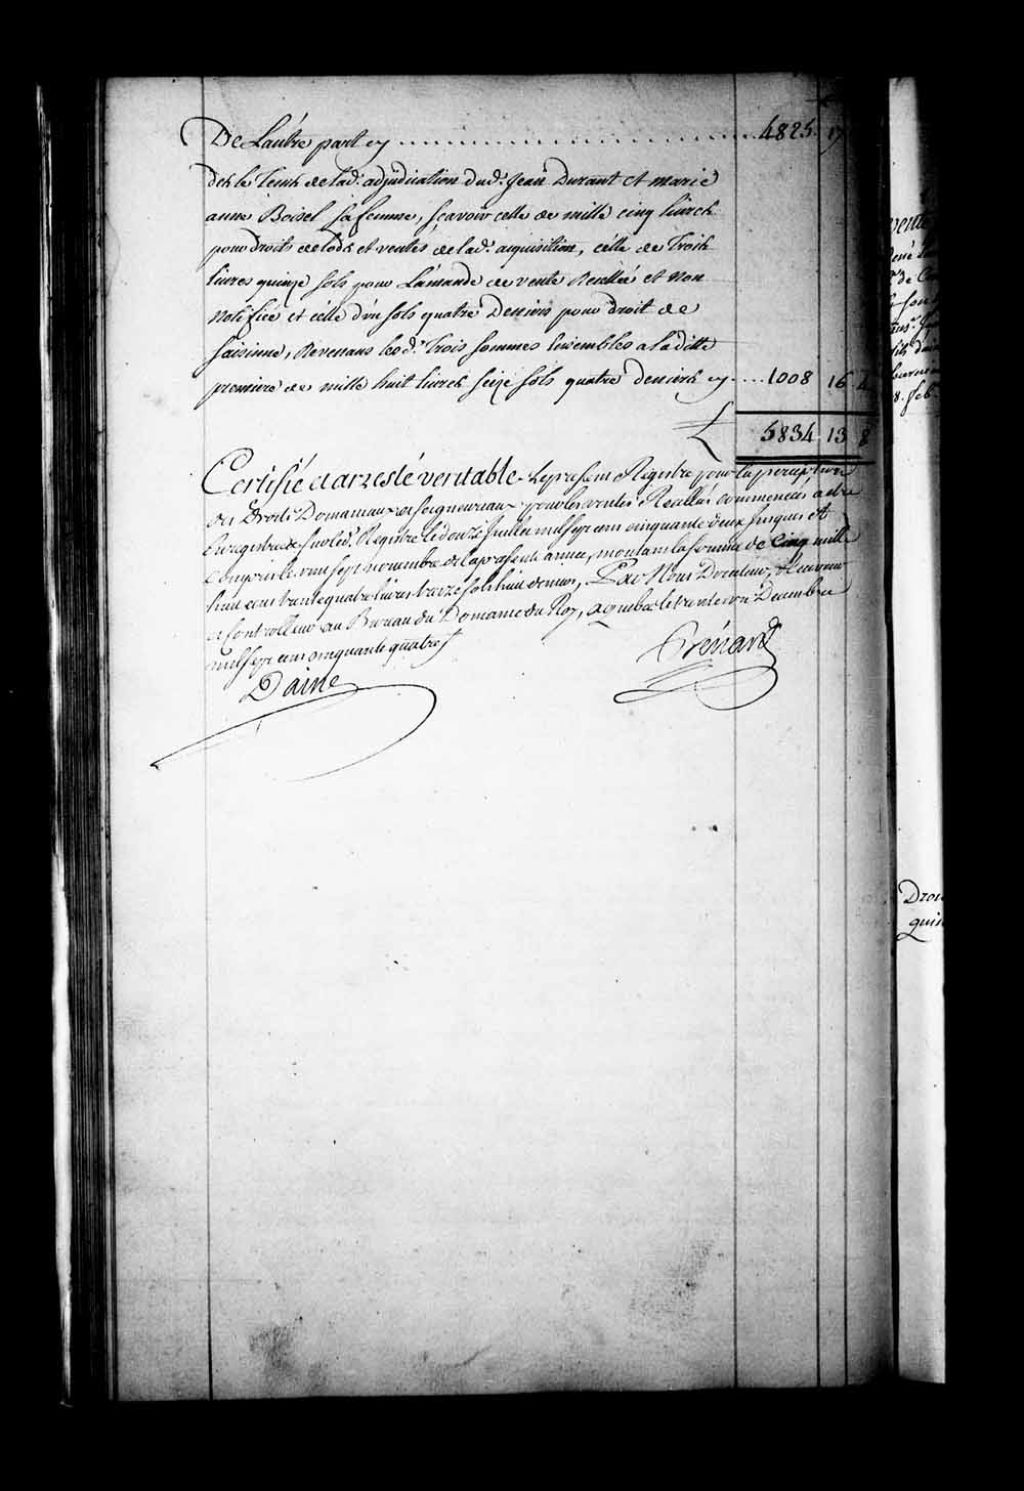 De Lautre part cy ........ 4825. 17
des le Tems de lad. adjudication dud. Jean Durant et marie
anne Boisel sa femme, scavoir celle de mille cinq livres
pour droits de lods et ventes de lad. acquisition, celle de Trois
livres quinze sols pour Lamande de vente Recellée et Non
Notifiée et celle d'un sols quatre Deniers pour droit de
saisinne, Revenans lesd. Trois sommes Ensembles a laditte
premiere de mille huit livres seize sols quatre deniers cy .... 1008 16 4
£ 5834 13 8
Certifié et arresté veritable. Le present Registre pour la perception
des Droits Domaniaux et seigneuriaux pour les ventes Recellés commencés a etre
Enregistrés sur led. Registre le douze Juillet mil sept cent cinquante deux Jusques et
Compris le vingt sept novembre de la presente année, montant la somme de Cinq mille
huit cent trente quatre livres treize sols huit deniers, Par Nous Directeur, Receveur
et Controlleur au Bureau du Domaine du Roy, a quebec le trente un Decembre
mil sept cent cinquante quatre
Daine
Prenard
vente
de
8. feb.
Droi
quin